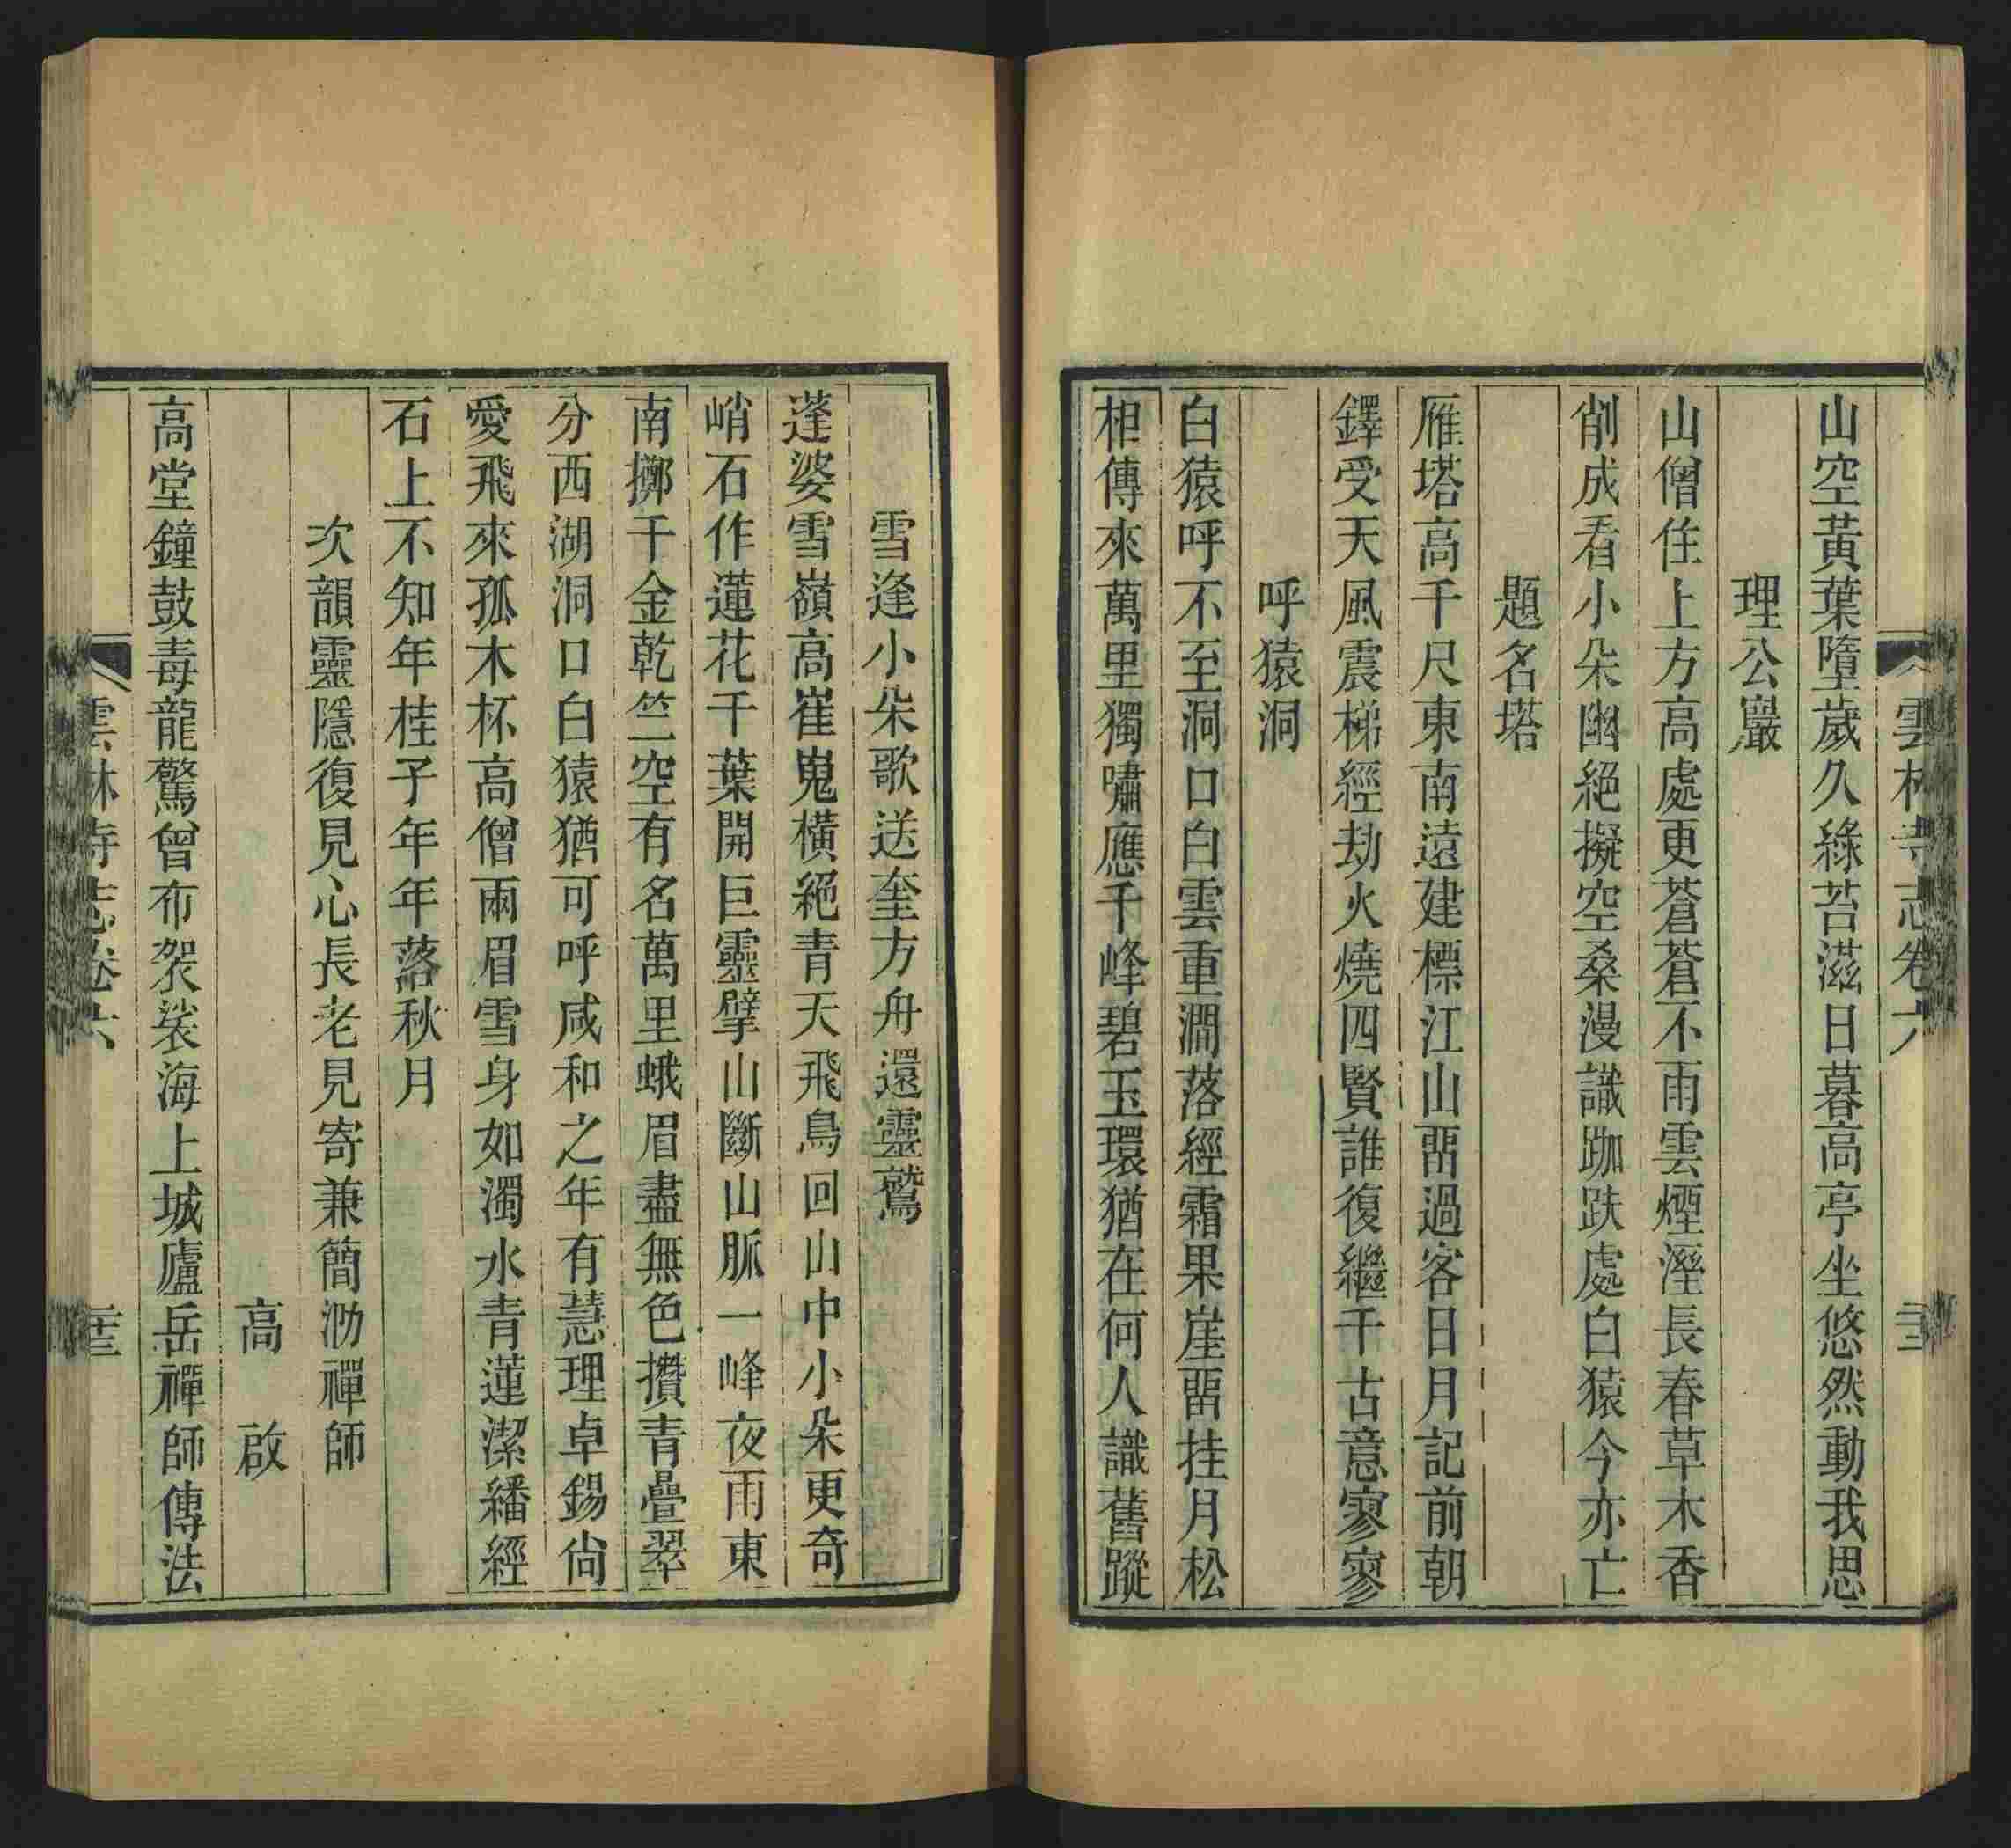 雲林寺志卷六
山空黃葉墮歲久綠苔滋日暮高亭坐悠然動我思
理公巖
山僧住上方高處更蒼蒼不雨雲煙溼長春草木香
削成看小朵幽絕擬空桑漫識跏趺處白猿今亦亡
題名塔
雁塔高千尺東南遠建標江山畱過客日月記前朝
鐸受天風震梯經劫火燒四賢誰復繼千古意寥寥
呼猿洞
白猿呼不至洞口白雲重澗落經霜果崖畱挂月松
相傳來萬里獨嘯應千峰碧玉環猶在何人識舊蹤
雪逢小朵歌送奎方舟還靈鷲
蓬婆雪嶺高崔嵬橫絕青天飛鳥回山中小朵更奇
峭石作蓮花千葉開巨靈擘山斷山脈一峰夜雨東
南擲千金乾竺空有名萬里蛾眉盡無色攢青疊翠
分西湖洞口白猿猶可呼咸和之年有慧理卓錫尙
愛飛來孤木杯高僧兩眉雪身如濁水青蓮潔繙經
石上不知年桂子年年落秋月
次韻靈隱復見心長老見寄兼簡泐禪師
高啟
高堂鐘鼓毒龍驚曾布袈裟海上城廬岳禪師傳法
雲林寺志卷六